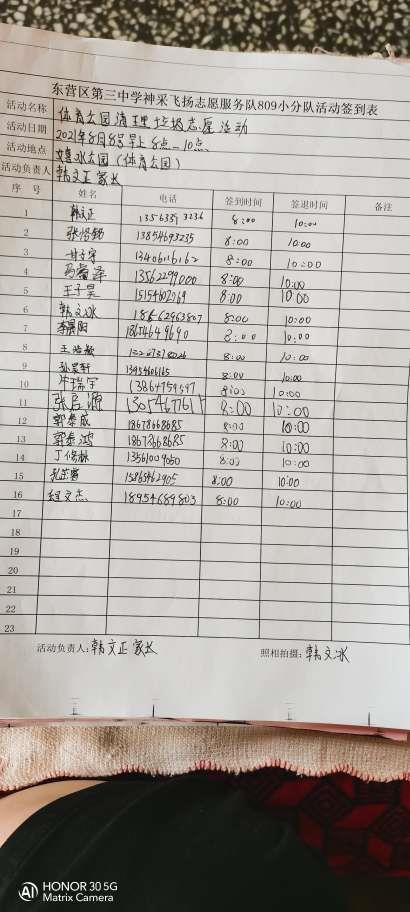 东营区第三中学神采飞扬志愿服务队809小分队活动签到表
活动名称 体育公园清理垃圾志愿活动
活动日期 2021年8月8号早上8点—10点
活动地点 冰公园(体育公园)
活动负责人 韩文正家长
序 号 姓名 电话 签到时间 签退时间 备注
1 韩文正 8:00 10:00
2 13854693235 8:00 10:00
3 13406116162 8:00 10:00
4 13562299000 8:00 10:00
5 王子昊 8:00 10:00
6 韩文冰 18662963807 8:00 10:00
7 李晨阳 8:00 10:00
8 8:00 10:00
9 8:00 10:00
10 8:00 10:00
11 8:00 10:00
12 18678668685 8:00 10:00
13 18678668685 8:00 10:00
14 13561009050 8:00 10:00
15 15865462905 8:00 10:00
16 程文杰 18954689803 8:00 10:00
17
18
19
20
21
22
23
活动负责人:韩文正家长 照相拍摄:韩文冰
AI HONOR 30 5G
Matrix Camera